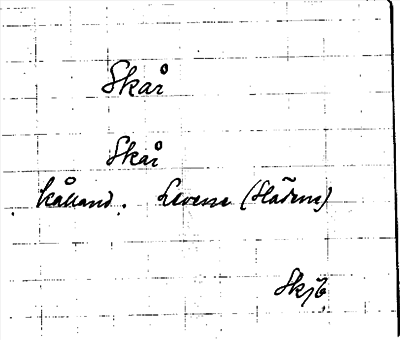 Skår
Skår
Kålland. Levene (Sladene)
Skjb.